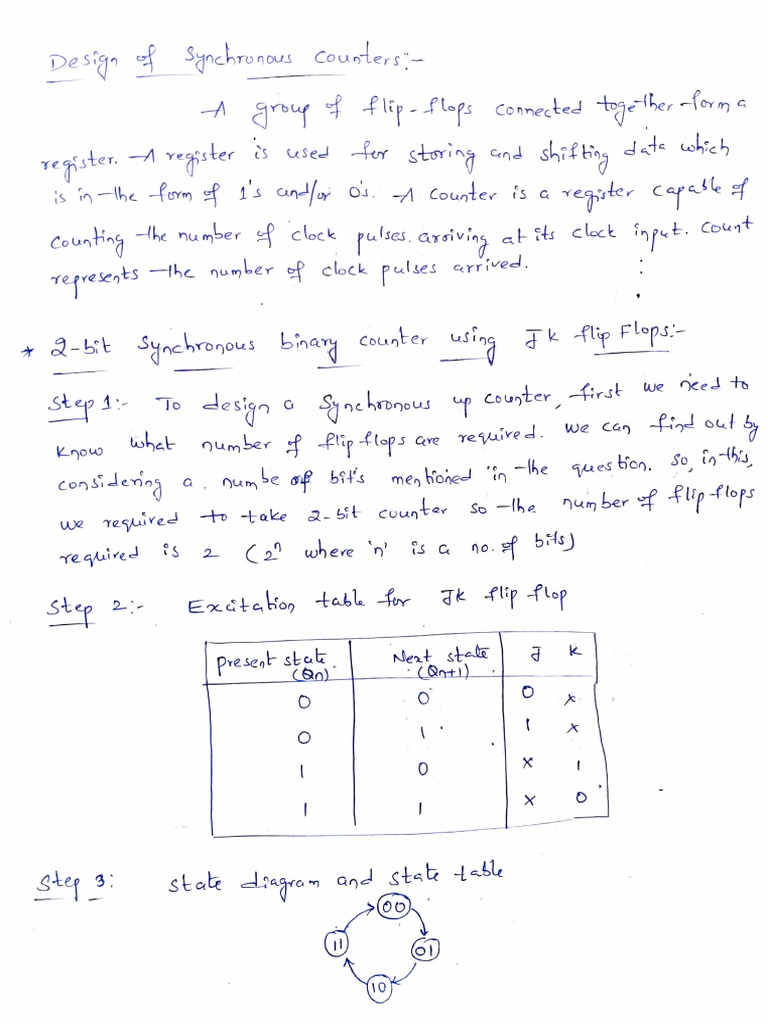 Design of Synchronous Counters:-
A group of flip-flops connected together form a
register. A register is used for storing and shifting data which
is in the form of 1's and/or 0's. A counter is a register capable of
counting the number of clock pulses. arriving at its clock input. Count
represents the number of clock pulses arrived.
* 2-bit Synchronous binary counter using JK flip Flops:-
Step 1:- To design a Synchronous up counter, first we need to
know what number of flip flops are required. we can find out by
considering a numbe of bit's mentioned in the question. So, in this,
we required to take 2-bit counter so the number of flip flops
required is 2 (2^n where 'n' is a no. of bits)
Step 2:- Excitation table for JK flip flop
Present state Next state J K
(Qn) (Qn+1)
0 0 0 x
0 1 1 x
1 0 x 1
1 1 x 0
Step 3: state diagram and state table
00
11 01
10